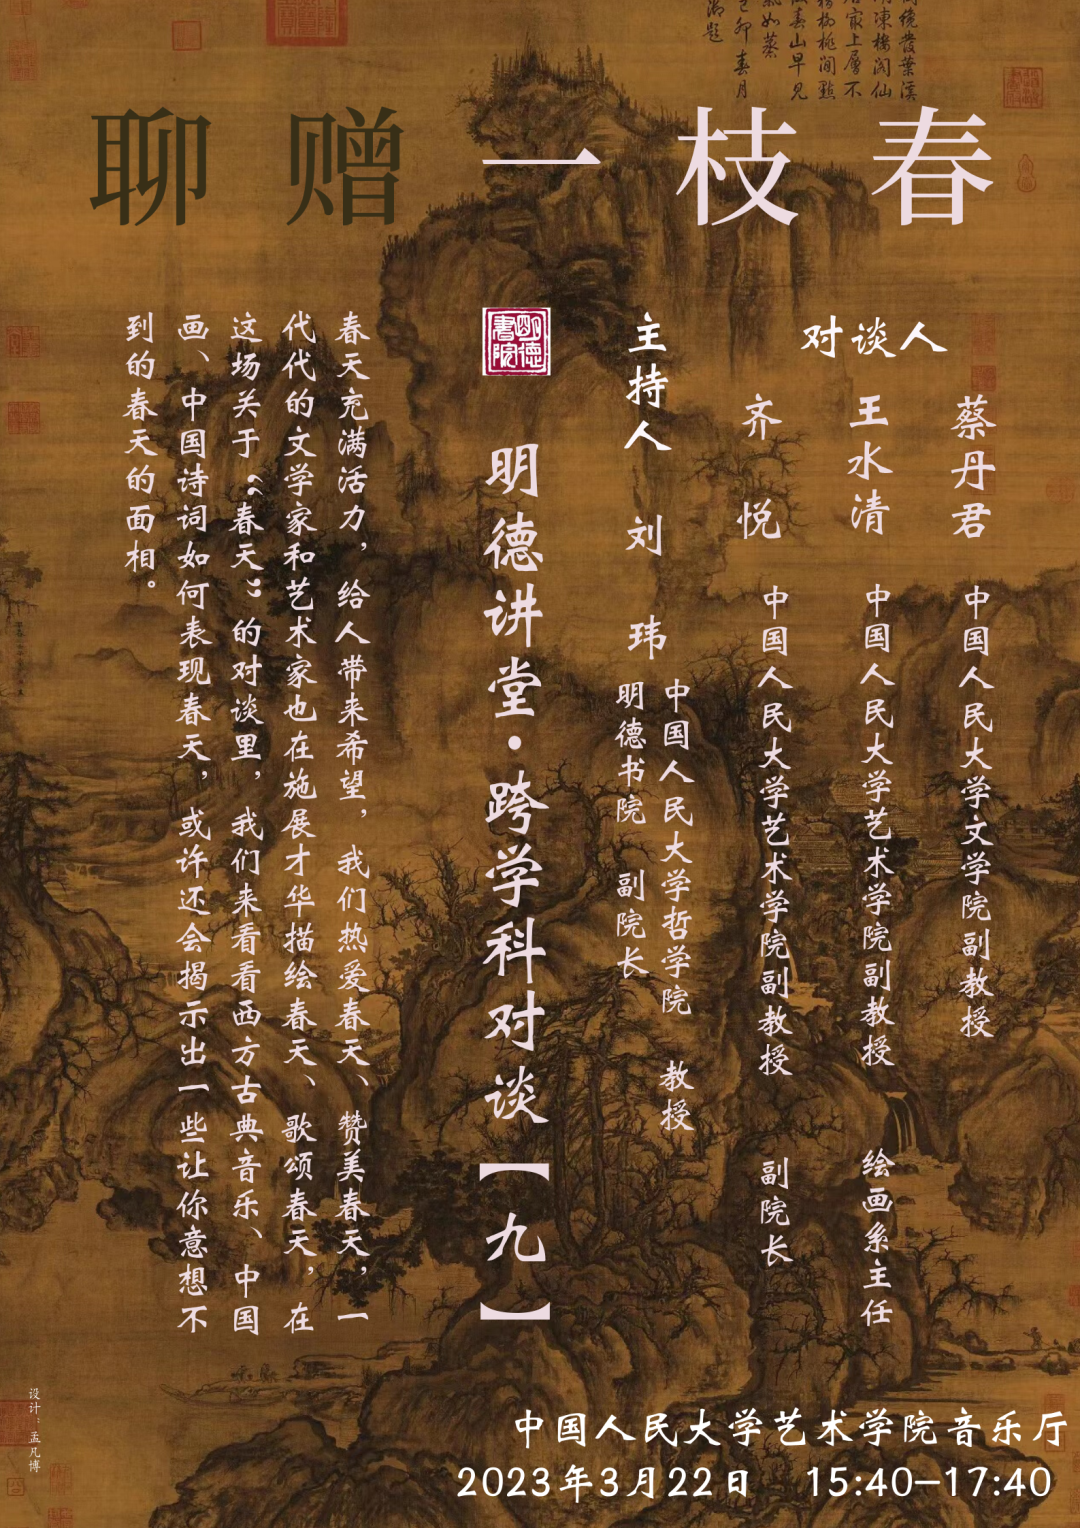 纔發葉溪
凍樓閣仙
居最上層不
柳桃閒點
春山早見
氣如蒸
己卯春月
御題
聊赠一枝春
对谈人
蔡丹君 中国人民大学文学院副教授
王水清 中国人民大学艺术学院副教授 绘画系主任
齐悦 中国人民大学艺术学院副教授 副院长
主持人 刘玮
中国人民大学哲学院 教授
明德书院 副院长
明德書院
明德讲堂·跨学科对谈【九】
春天充满活力，给人带来希望，我们热爱春天、赞美春天，一
代代的文学家和艺术家也在施展才华描绘春天、歌颂春天，在
这场关于“春天”的对谈里，我们来看看西方古典音乐、中国
画、中国诗词如何表现春天，或许还会揭示出一些让你意想不
到的春天的面相。
设计：孟凡博
中国人民大学艺术学院音乐厅
2023年3月22日 15:40—17:40